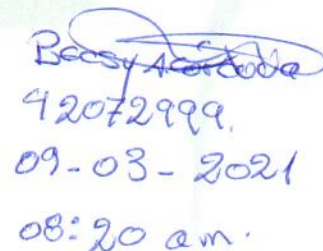 Becsy A Córdova
42072999.
09-03-2021
08:20 am.